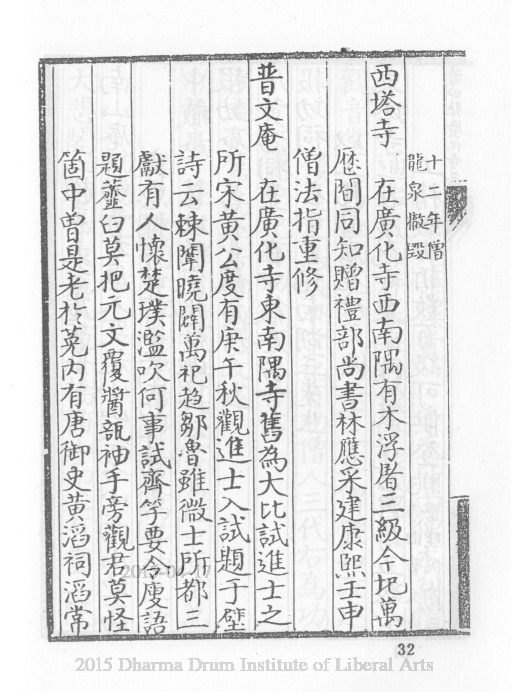 十二年僧
龍泉撤毀
西塔寺　在廣化寺西南隅有木浮屠三級今圮萬
厯間同知贈禮部尚書林應采建康熙壬申
僧法指重修
普文庵　在廣化寺東南隅寺舊為大比試進士之
所宋黃公度有庚午秋觀進士入試題于壁
詩云棘闈曉闢萬袍趍鄒魯雖微士所都三
獻有人懷楚璞濫吹何事試齊竽要令廋語
題虀臼莫把元文覆醬瓿袖手旁觀君莫怪
箇中曽是老於菟內有唐御史黃滔祠滔常
32
2015 Dharma Drum Institute of Liberal Arts